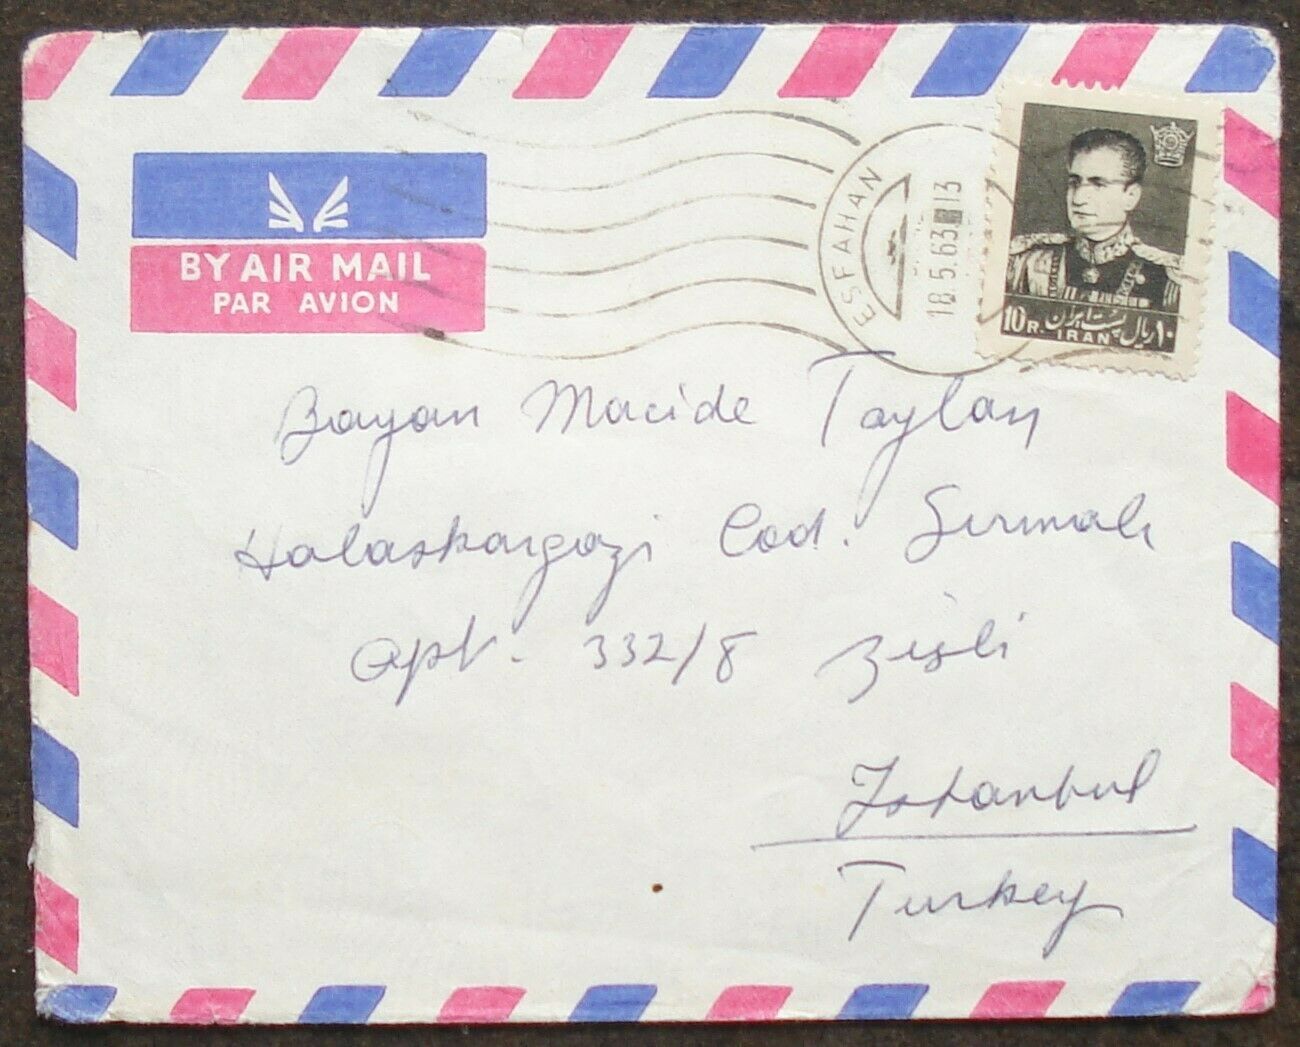 BY AIR MAIL
PAR AVION
ESFAHAN
18.5.63 13
10 R. پست ایران ۱۰ ریال
IRAN
Bayan Macide Taylan
Halaskargazi Cad. Sırmalı
Apt. 332/8 Şişli
Istanbul
Turkey